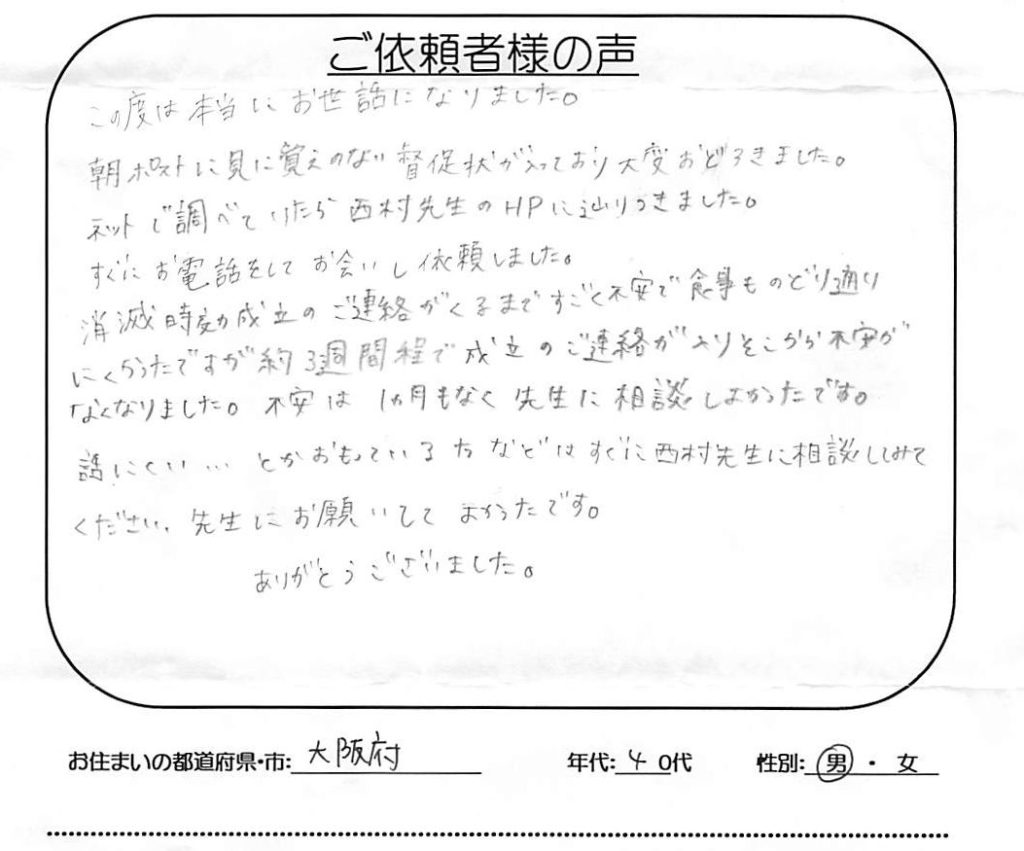 ご依頼者様の声
この度は本当にお世話になりました。
朝ポストに見に覚えのない督促状が入っており大変おどろきました。
ネットで調べていたら西村先生のHPに辿りつきました。
すぐにお電話をしてお会いし依頼しました。
消滅時効成立のご連絡がくるまですごく不安で食事ものどり通り
にくかったですが約3週間程で成立のご連絡が入りそこから不安が
なくなりました。不安は1カ月もなく先生に相談しよかったです。
話にくい…とかおもっている方などはすぐに西村先生に相談してみて
ください、先生にお願いしてよかったです。
ありがとうございました。
お住まいの都道府県・市: 大阪府 年代: 40代 性別: 男・女